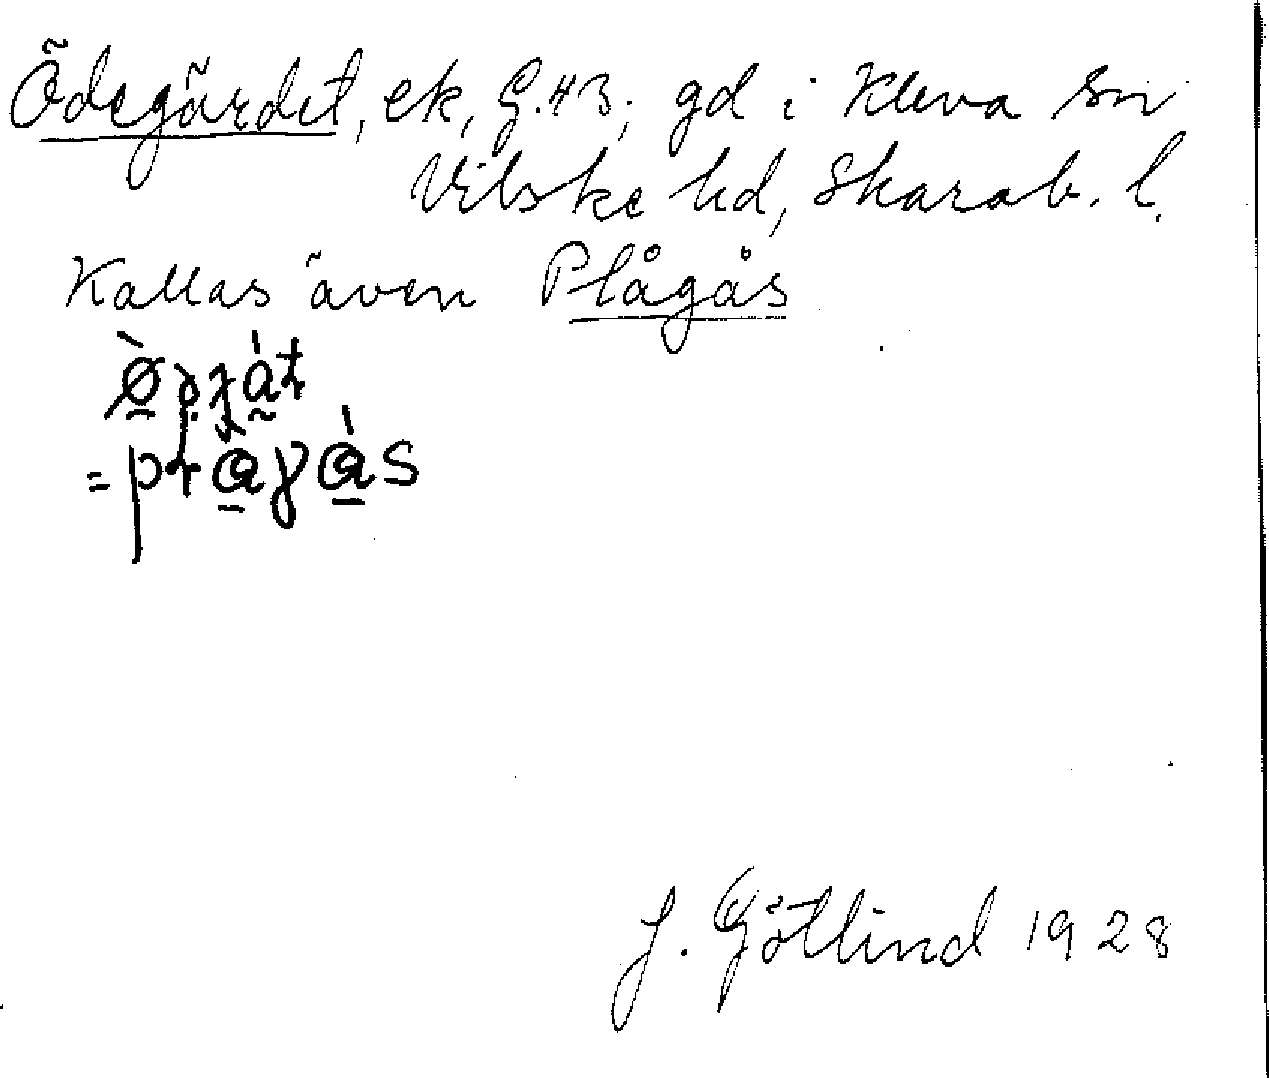 Ödegärdet, ek, G.43; gd i Kleva sn
Vilske hd, Skarab. l.
Kallas även Plågås
J. Götlind 1928